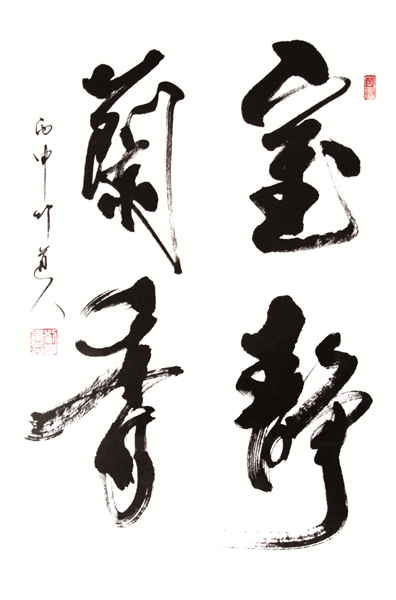 室靜
蘭香
丙申竹道人